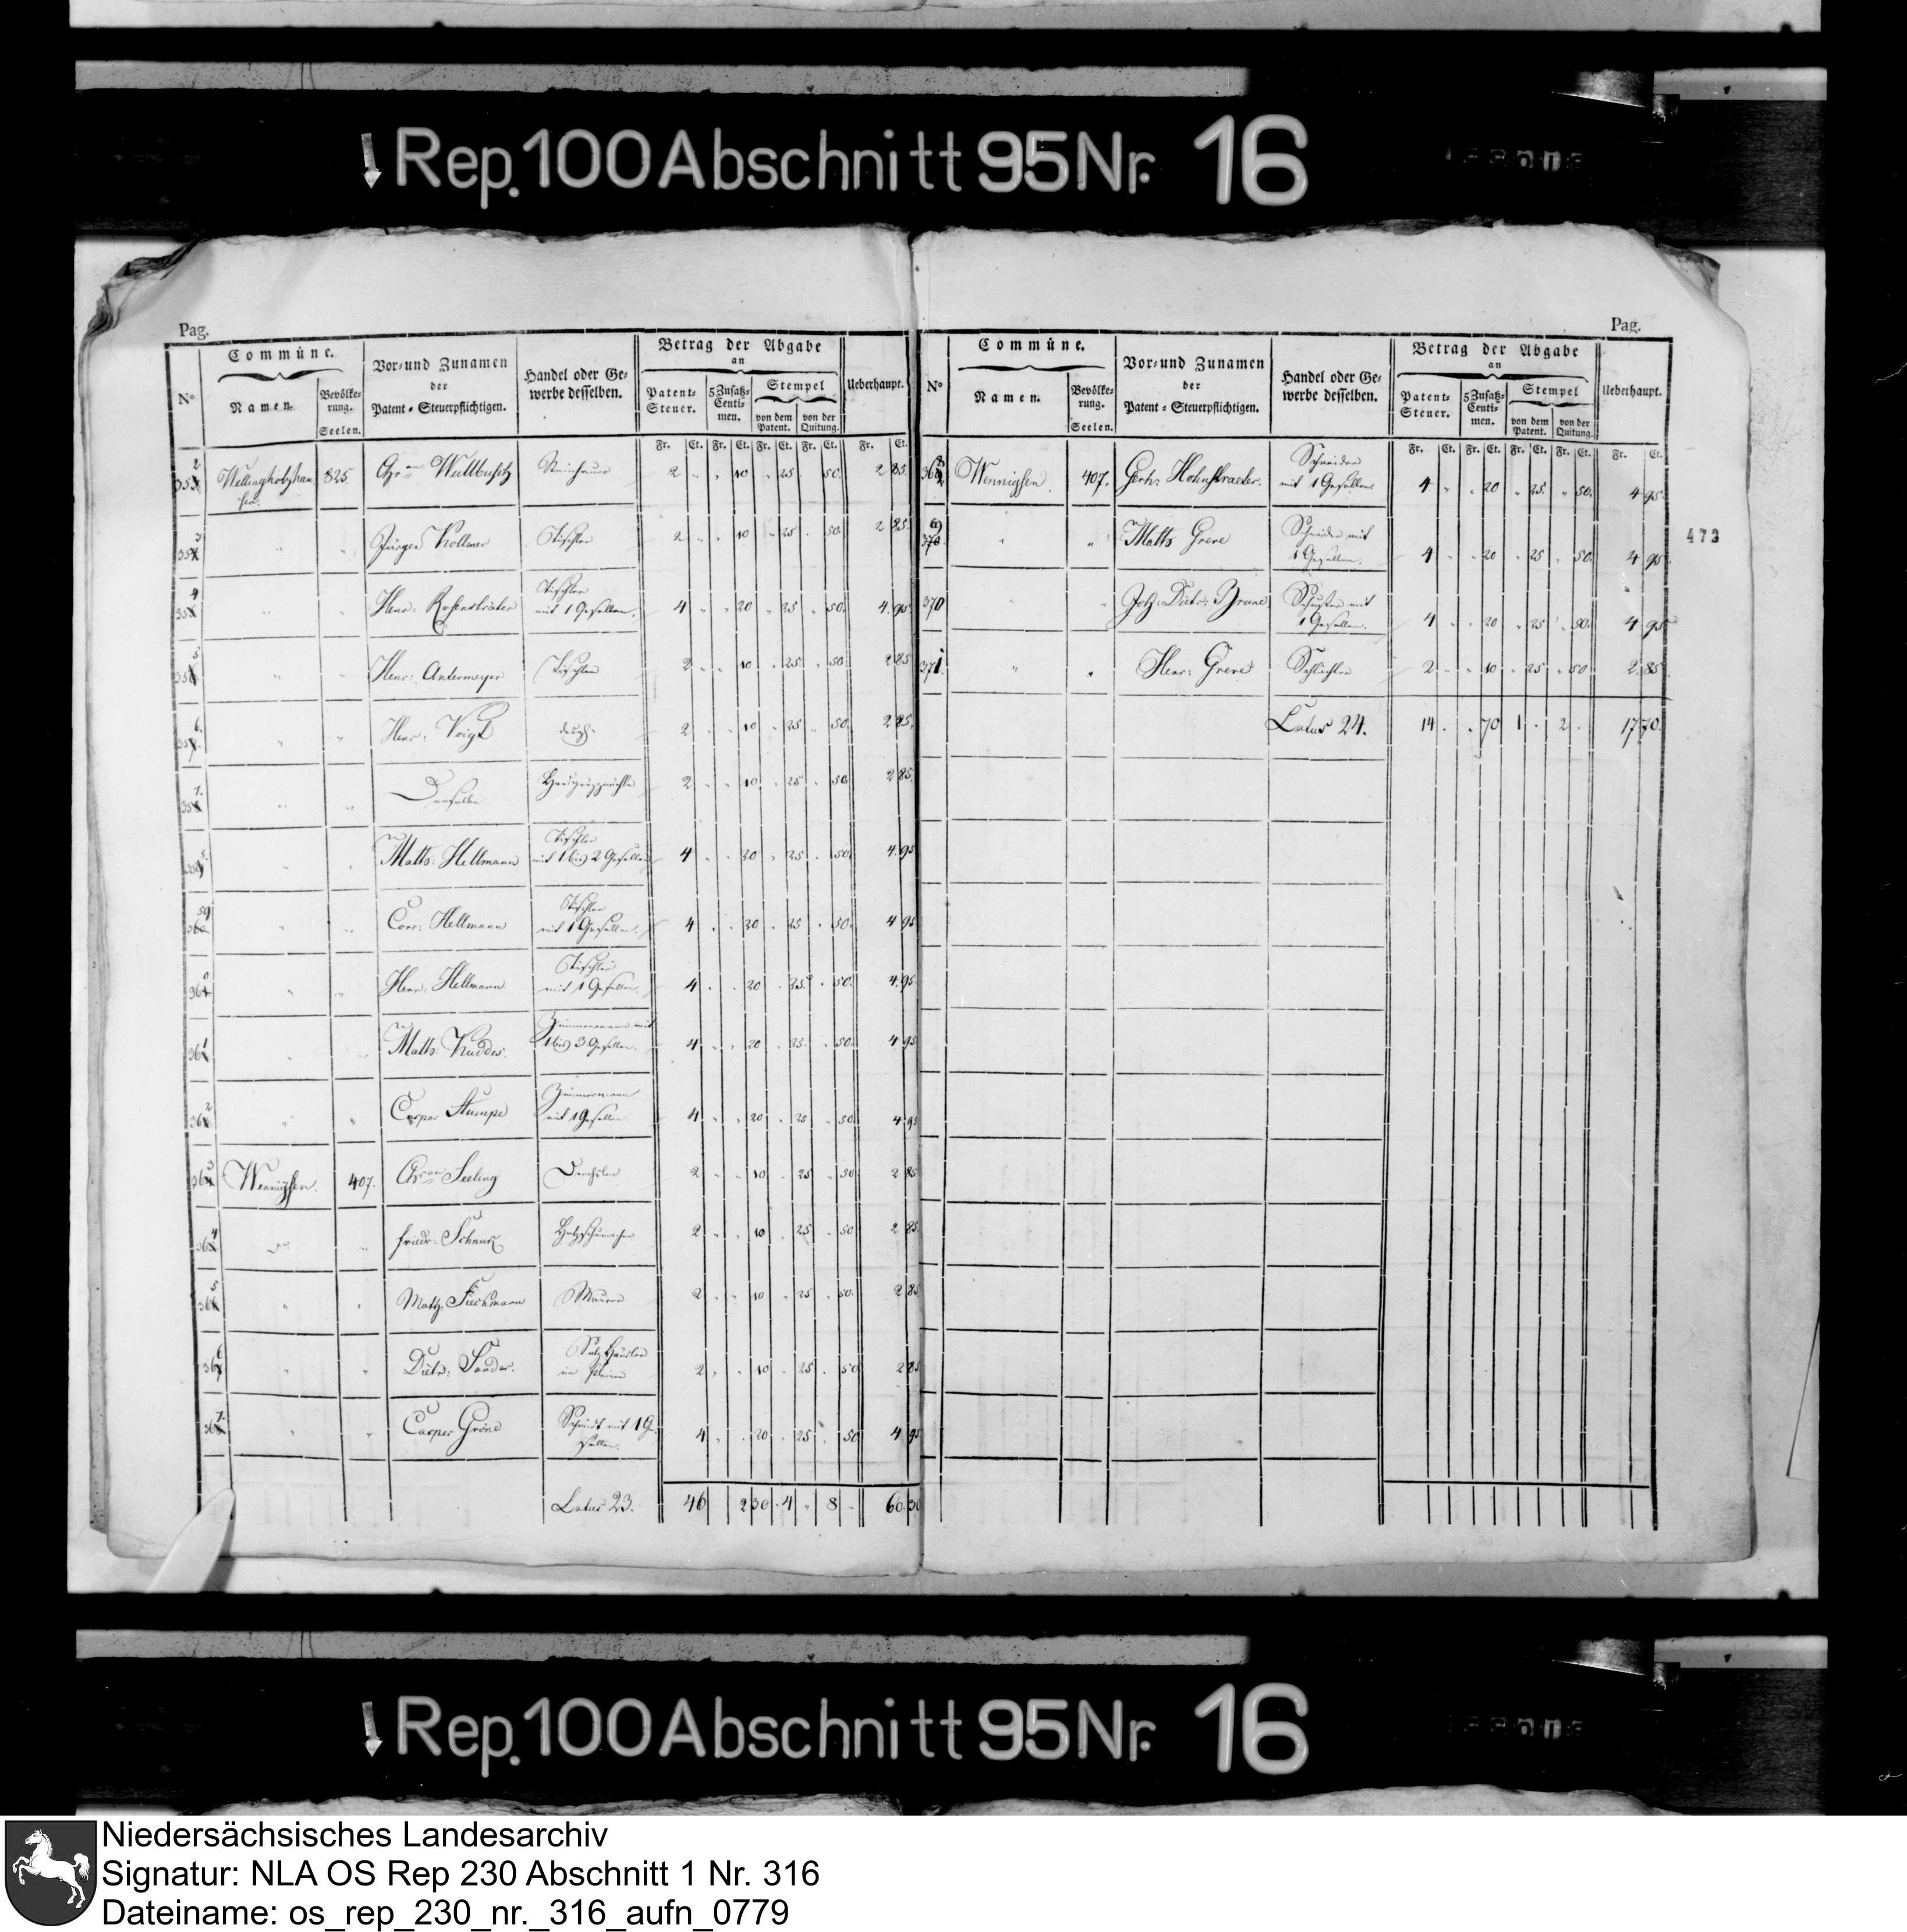 Rep. 100 Abschnitt 95 Nr. 16
Pag.
Commüne.
Betrag der Abgabe
an
N°
Namen.
Bevölke-
rung.
Seelen.
Vor- und Zunamen
der
Patent-Steuerpflichtigen.
Handel oder Ge-
werbe desselben.
Patent-
Steuer.
5 Zusatz-
Centi-
men.
Stempel
von dem
Patent.
von der
Quitung.
Ueberhaupt.
Fr. Ct. Fr. Ct. Fr. Ct. Fr. Ct. Fr. Ct.
825. 2 10 25 50. 2 85.
Jürgen Kollmer Tischler 2 10 25 50. 2 85.
Henr: Rosensträter Tischler
mit 1 Gesellen. 4 20 25 50. 4 95
Henr: Antermeyer Tischler 2 10 25 50 2 85
Henr: Voigt 2 10 25 50. 2 85.
Derselbe 2 10 25 50. 2 85.
Matts: Hellmann Tischler
mit 1 bis 2 Gesellen 4 20 25 50. 4 95
Hellmann Tischler
mit 1 Gesellen. 4 20 25 50. 4 95
Henr: Hellmann Tischler
mit 1 Gesellen. 4 20 25. 50. 4 95
361 Matts: Kuddes. Zimmermann mit
1 bis 3 Gesellen. 4 20 25. 50. 4 95
362 Casper Stumpe Zimmermann
mit 1 Gesellen 4 20 25 50. 4 95
363 Wennigsen. 407. Seeling Drechsler 2 10 25 50 2 85
364 Friedr: Holzschumacher 2 10 25 50 2 85.
365 Maurer 2 10 25 50. 2 85
366 Dietr: Sander. 2 10 25 50 2 85
367 Casper Gröne Schmidt mit 1 Ge-
sellen. 4 20 25 50 4 95
Latus 23. 46 2 30 4 8 60 30
Pag.
Commüne.
Betrag der Abgabe
an
N°
Namen.
Bevölke-
rung.
Seelen.
Vor- und Zunamen
der
Patent-Steuerpflichtigen.
Handel oder Ge-
werbe desselben.
Patent-
Steuer.
5 Zusatz-
Centi-
men.
Stempel
von dem
Patent.
von der
Quitung.
Ueberhaupt.
Fr. Ct. Fr. Ct. Fr. Ct. Fr. Ct. Fr. Ct.
368 Wennigsen 407. Gerh: Hohnstraeter. Schneider
mit 1 Gesellen 4 20 25. 50. 4 95.
Matts Greve Schneider mit
1 Gesellen. 4 20 25 50. 4 95
473
370 Joh: Dietr: Brune Schuster mit
1 Gesellen. 4 20 25 50. 4 95
371. Henr: Greve 2 10 25 50 2 85
Latus 24. 14 70 1 2 17 70.
Rep. 100 Abschnitt 95 Nr. 16
Niedersächsisches Landesarchiv
Signatur: NLA OS Rep 230 Abschnitt 1 Nr. 316
Dateiname: os_rep_230_nr._316_aufn_0779